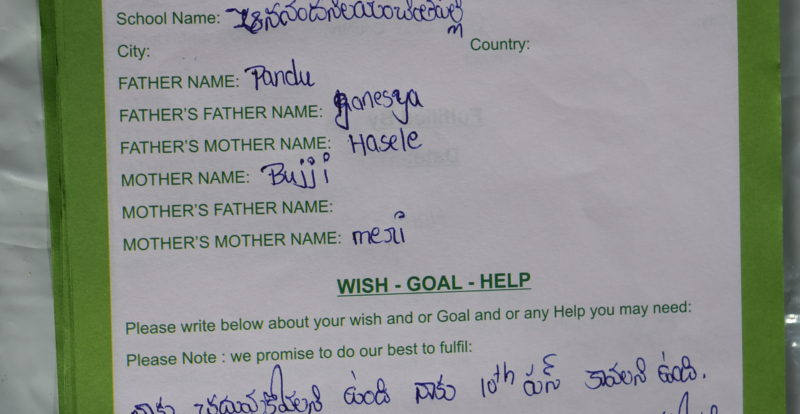 School Name:
City: Country:
FATHER NAME: Pandu
FATHER'S FATHER NAME: ganesya
FATHER'S MOTHER NAME: Hasele
MOTHER NAME: Bujji
MOTHER'S FATHER NAME:
MOTHER'S MOTHER NAME: meri
WISH - GOAL - HELP
Please write below about your wish and or Goal and or any Help you may need:
Please Note : we promise to do our best to fulfil:
నాకు చదువుకోవాలని ఉంది నాకు 10th పాస్ కావాలని ఉంది.